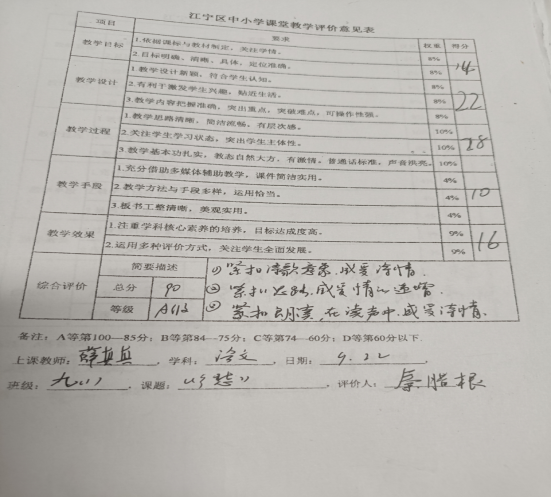 江宁区中小学课堂教学评价意见表
项目 要求 权重 得分
教学目标 1.依据课标与教材制定,关注学情。 8%
2.目标明确,清晰,具体,定位准确。 8% 14
教学设计 1.教学设计新颖,符合学生认知。 8%
2.有利于激发学生兴趣,贴近生活。 8% 22
3.教学内容把握准确,突出重点,突破难点,可操作性强。 8%
教学过程 1.教学思路清晰,简洁流畅,有层次感。 10%
2.关注学生学习状态,突出学生主体性。 10% 28
3.教学基本功扎实,教态自然大方,有激情。普通话标准,声音洪亮。 10%
教学手段 1.充分借助多媒体辅助教学,课件简洁实用。 4%
2.教学方法与手段多样,运用恰当。 4% 10
3.板书工整清晰,美观实用。 4%
教学效果 1.注重学科核心素养的培养,目标达成度高。 9%
2.运用多种评价方式,关注学生全面发展。 9% 16
综合评价 简要描述 ① 紧扣诗歌意象,感受诗情.
总分 90 ② 紧扣 感受情
等级 A ③ 紧扣 在读声中,感受诗情.
备注:A等第100—85分;B等第84—75分;C等第74—60分;D等第60分以下.
上课教师: 学科:语文,日期:9.22
班级:九(1),课题: ,评价人: